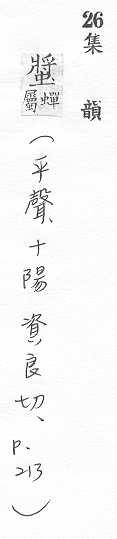 26集韻
螿 蟬屬
(平聲、十陽 資良切、p.213)